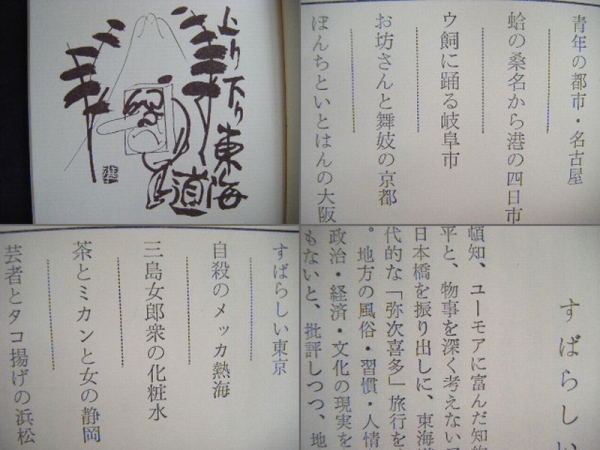 上り下り東海
道
青年の都市・名古屋
蛤の桑名から港の四日市
ウ飼に踊る岐阜市
お坊さんと舞妓の京都
ぼんちといとはんの大阪
すばらしい東京
自殺のメッカ熱海
三島女郎衆の化粧水
茶とミカンと女の静岡
芸者とタコ揚げの浜松
すばらしい
頓知、ユーモアに富んだ知的
平と、物事を深く考えない
日本橋を振り出しに、東海道
代的な「弥次喜多」旅行を
。地方の風俗・習慣・人情
政治・経済・文化の現実を
もないと、批評しつつ、地